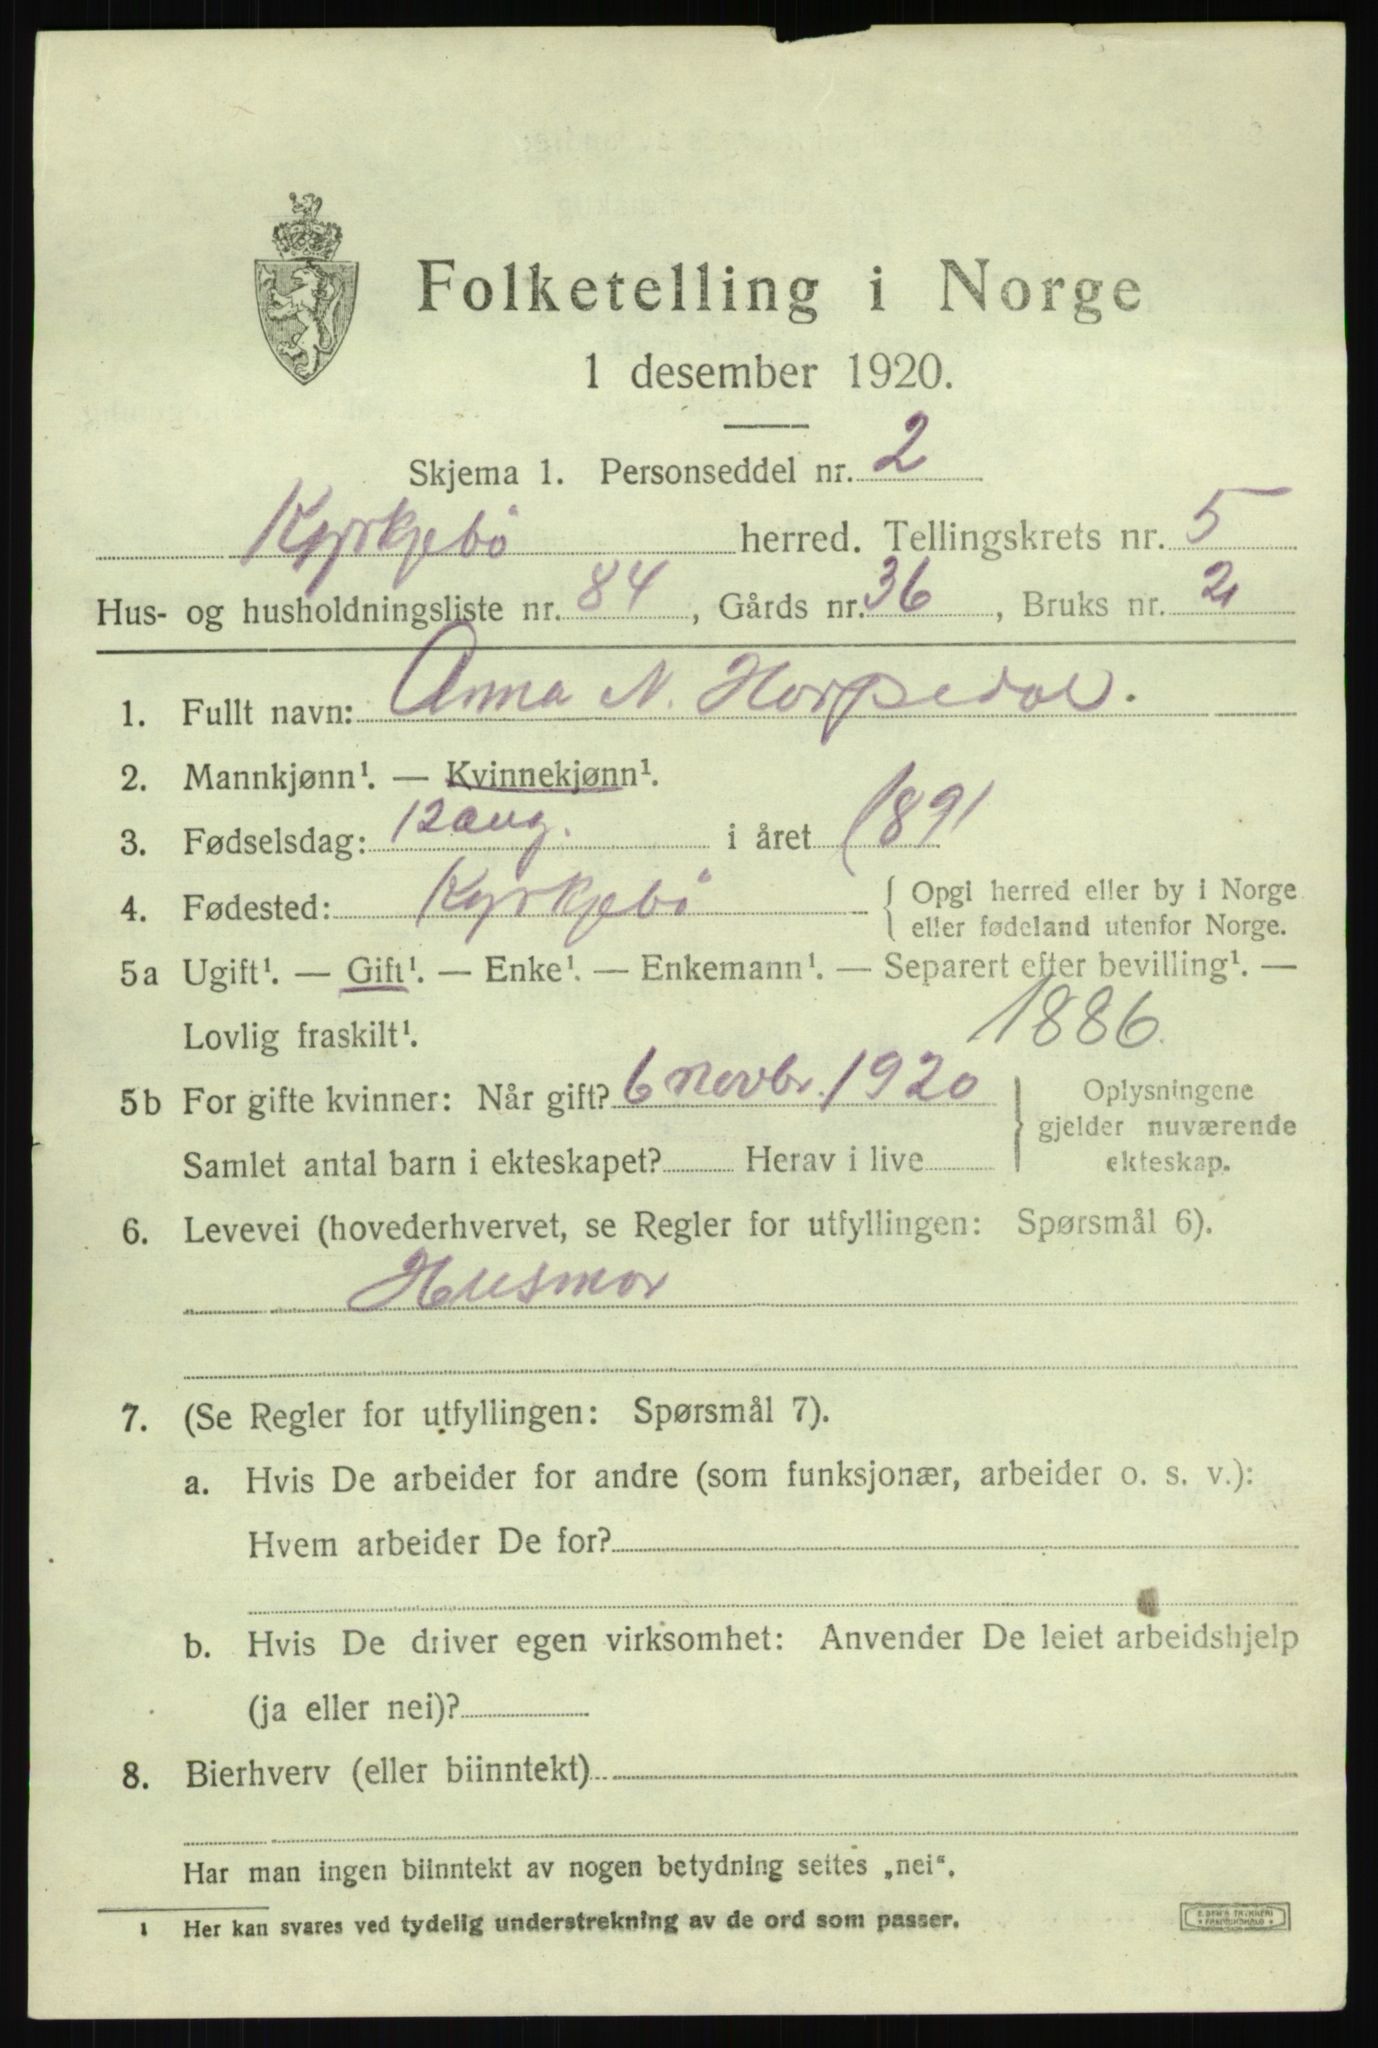 Folketelling i Norge
1 desember 1920.
Skjema 1. Personseddel nr. 2
Kyrkjebö herred. Tellingskrets nr. 5
Hus- og husholdningsliste nr. 84, Gårds nr. 36, Bruks nr. 2
1. Fullt navn: Anna N. Horpedal.
2. Mannkjønn¹. — Kvinnekjønn¹.
3. Fødselsdag: 12 aug. i året 1891
4. Fødested: Kyrkjebö { Opgi herred eller by i Norge
eller fødeland utenfor Norge.
5a Ugift¹. — Gift¹. — Enke¹. — Enkemann¹. — Separert efter bevilling¹. —
Lovlig fraskilt¹. 1886.
5b For gifte kvinner: Når gift? 6 novbr. 1920 } Oplysningene
gjelder nuværende
Samlet antal barn i ekteskapet? Herav i live ekteskap.
6. Levevei (hovederhvervet, se Regler for utfyllingen: Spørsmål 6).
Husmor
7. (Se Regler for utfyllingen: Spørsmål 7).
a. Hvis De arbeider for andre (som funksjonær, arbeider o. s. v.):
Hvem arbeider De for?
b. Hvis De driver egen virksomhet: Anvender De leiet arbeidshjelp
(ja eller nei)?
8. Bierhverv (eller biinntekt)
Har man ingen biinntekt av nogen betydning settes „nei“.
¹ Her kan svares ved tydelig understrekning av de ord som passer.